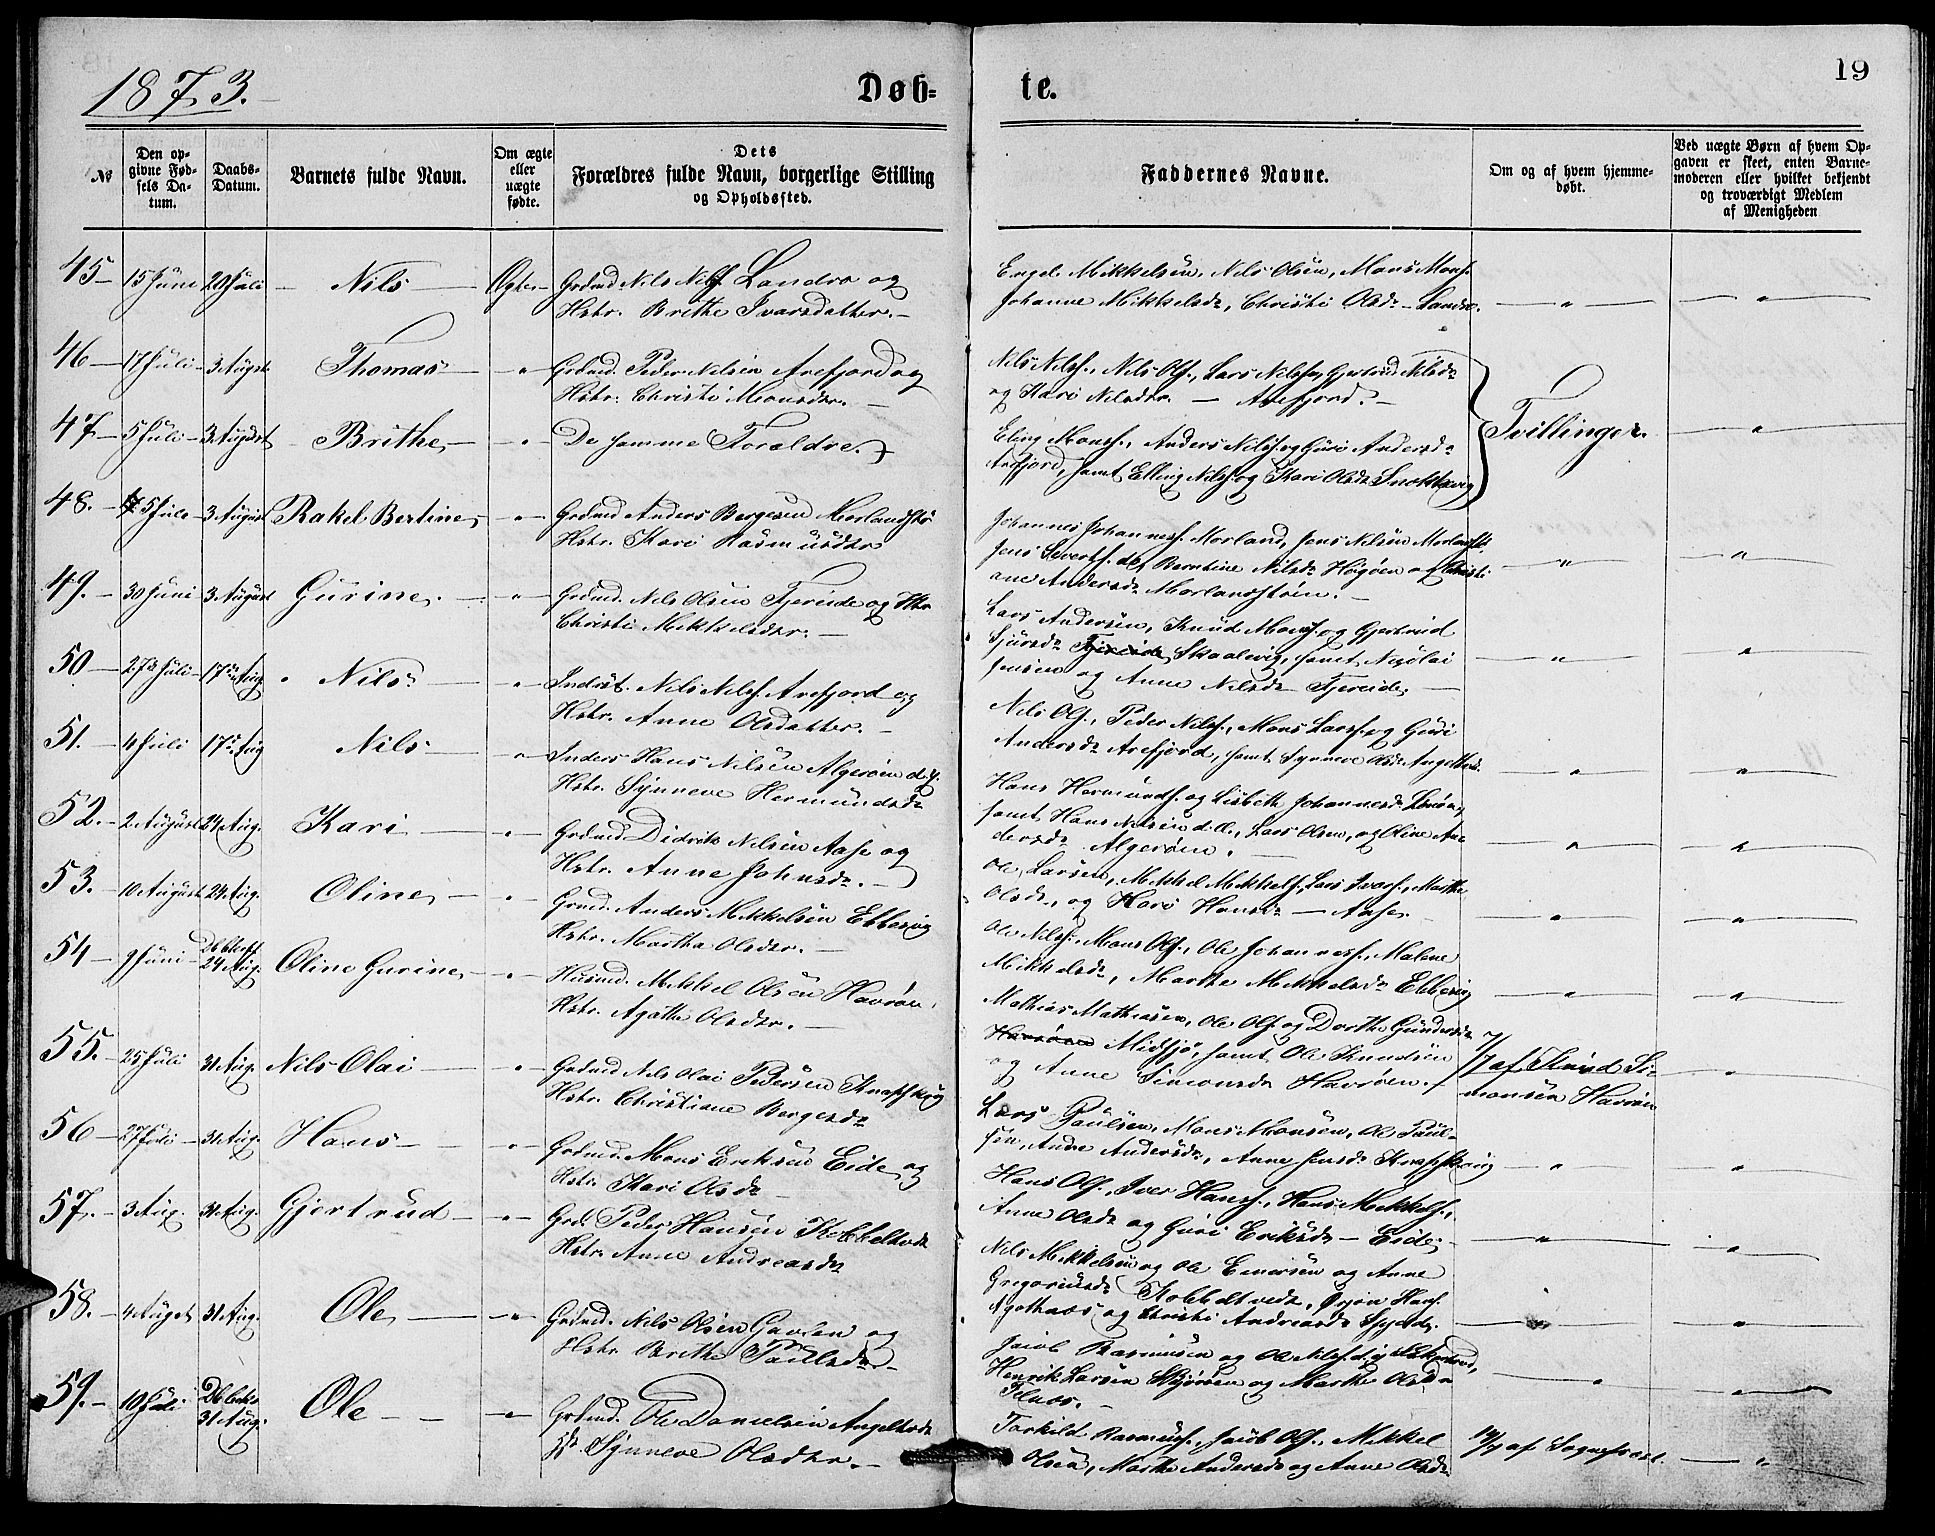 1873.
Døb=
te.
19
№
Den op=
givne Fød=
sels Da=
tum.
Daabs=
Datum.
Barnets fulde Navn.
Om ægte
eller
uægte
fødte.
Dets
Forældres fulde Navn, borgerlige Stilling
og Opholdssted.
Faddernes Navne.
Om og af hvem hjemme=
døbt.
Ved uægte Børn af hvem Op=
gaven er skeet, enten Barne=
moderen eller hvilket bekjendt
og troværdigt Medlem
af Menigheden
45 15 Juni 20 Juli Nils Ægte Grdmd. Nils Nilsf. Landro og
Hstr. Brithe Ivarsdatter.
Engel. Mikkelsen, Nils Olsen, Mons Monsf.
Johanne Mikkelsdr, Christi Olsdr - Landro.
46 17 Juli 3 Augst Thomas " Grdmd. Peder Nilsen Arefjord og
Hstr. Christi Monsdtr.
Nils Nilsf., Nils Olsf., Lars Nilsf., Gjertrud Nilsdr
og Kari Nilsdtr. - Arefjord.
47 5 Juli 3 August Brithe " De samme Forældre.
Eling Monsf., Anders Nilsf. og Guri Andersdr
Arefjord, samt Elling Nilsf. og Kari Olsdr Snekkevig
Tvillinger. "
48. 5 Juli 3 August Rakel Bertine " Grdmd Anders Bergesen Morlandstø
Hstr. Kari Rasmusdtr
Johannes Johannesf. Morland, Jens Nilsen Morlandstø
Jens Sivertsf. Berntine Nilsdr Høgøen og Christi
ane Andersdr Morlandstøen. " "
49. 30 Juni 3 August Gurine. " Grdmd. Nils Olsen Fjereide og Hstr
Christi Mikkelsdtr.
Lars Andersen, Knud Monsf. og Gjertrud
Sjursdr Skaalevig, samt Nicolai
Jensen og Anne Nilsdr Fjereide. " "
50 27 Juli 17 Aug Nils " Inderst. Nils Nilsf. Arefjord og
Hstr. Anne Olsdatter.
Nils Olsf., Peder Nilsf., Mons Larsf. og Guri
Andersdr Arefjord, samt Synneve Olsdr Angeltved. " "
51. 4 Juli 17 Aug Nils " Inders Hans Nilsen Algerøen d. y.
Hstr. Synneve Hermundsdr
Hans Hermundsf. og Lisbeth Johannesdr
samt Hans Nilsen d. Æ., Lars Olsen, og Oline An
dersdr Algerøen. " "
52. 2 August 24 Aug. Kari " Grdmd. Didrik Nilsen Aase og
Hstr. Anne Johnsdr.
Ole Larsen, Mikkel Mikkelsf., Lars Ivarsf., Marthe
Olsdr, og Kari Hansdr - Aase. " "
53. 10 August 24 Aug. Oline " Grmd. Anders Mikkelsen Ebbesvig
Hstr. Martha Olsdtr.
Ole Nilsf. Mons Olsf., Ole Johannesf., Malene
Mikkelsdr, Marthe Mikkelsdr Ebbesvig " "
54 9 Juni 24 Aug. Oline Gurine " Husmd. Mikkel Olsen Havrøen,
Hstr. Agathe Olsdtr.
Mathias Mathiasen, Ole Olsf. og Dorthe Gundersdr
Midsjø, samt Ole Knudsen
og Anne Simonsdr Havrøen.
af Knud Si
monsen Havrøen "
55. 25 Juli 31 Aug. Nils Olai " Grdmd Nils Olai Pedersen Knapskog
Hstr. Christiane Bergesdr
Lars Paulsen, Mons Monsen, Ole Paul-
sen, Andersdr, Anne Jensdr Knapskog " "
56 27 Juli 31 Aug. Hans " Grdmd. Mons Eriksen Eide og
Hstr. Kari Olsdr
Hans Olsf., Iver Hansf., Hans Mikkelsf.,
Anne Olsdr og Guri Eriksdr - Eide " "
57. 3 Aug. 31 Aug. Gjertrud " Grd. Peder Hansen Kobbeltvedt
Hstr. Anne Andreasdr
Nils Mikkelsen og Ole Einersen og Anne
Gregoriusdr Kobbeltvedt, Hansf.
Agothnes og Christi Andreasdr Spjeld. " "
58. 4 Augst 31 Aug. Ole " Grdmd. Nils Olsen Gavlen og
Hstr Brithe Paulsdr
Jacob Rasmusen og Ole Nilsf. d. y.
Henrik Larsen og Marthe Olsdr
" "
59. 10 Juli 31 Aug. Ole " Grdmd. Ole Danielsen Angeltvedt
Synneve Olsdtr.
Torkild Rasmusf., Jacob Olsf., Mikkel
Olsen, Marthe Andersdr og Anne Olsdr
af Sognepræst. "